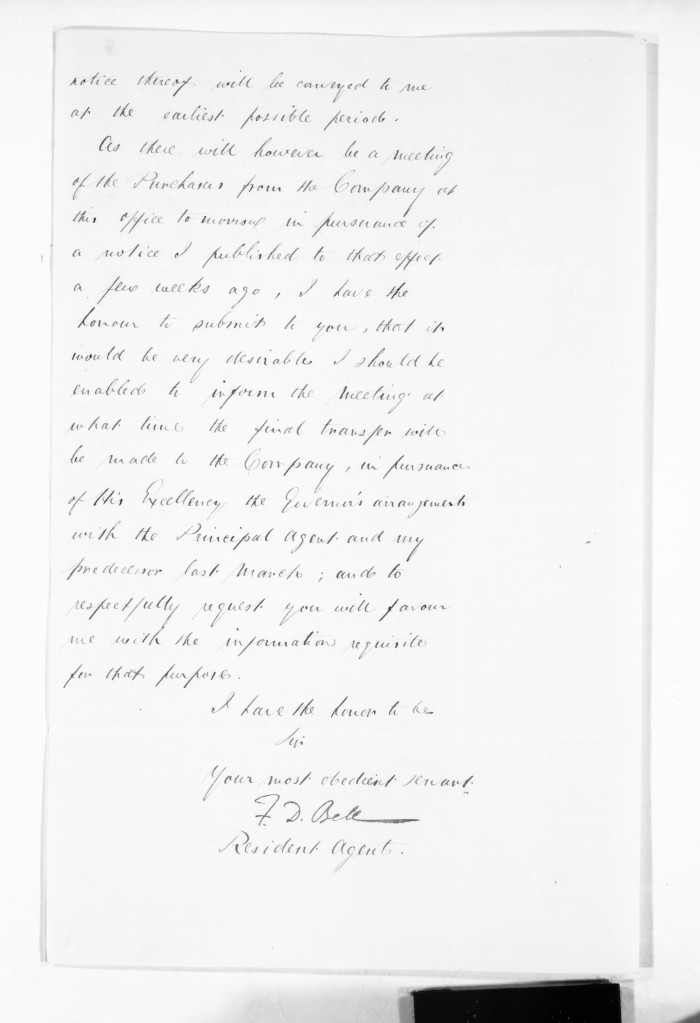 notice thereof will be conveyed to me
at the earliest possible period.
As there will however be a meeting
of the Purchasers from the Company at
this office tomorrow in pursuance of
a notice I published to that effect
a few weeks ago, I have the
honour to submit to you, that it
would be very desirable I should be
enabled to inform the meeting at
what time the final transfer will
be made to the Company, in pursuance
of His Excellency the Governor's arrangements
with the Principal Agent and my
predecessor last March; and to
respectfully request you will favour
me with the information requisite
for that purpose.
I have the honor to be
Sir
Your most obedient servant.
F. D. Bell
Resident Agent.